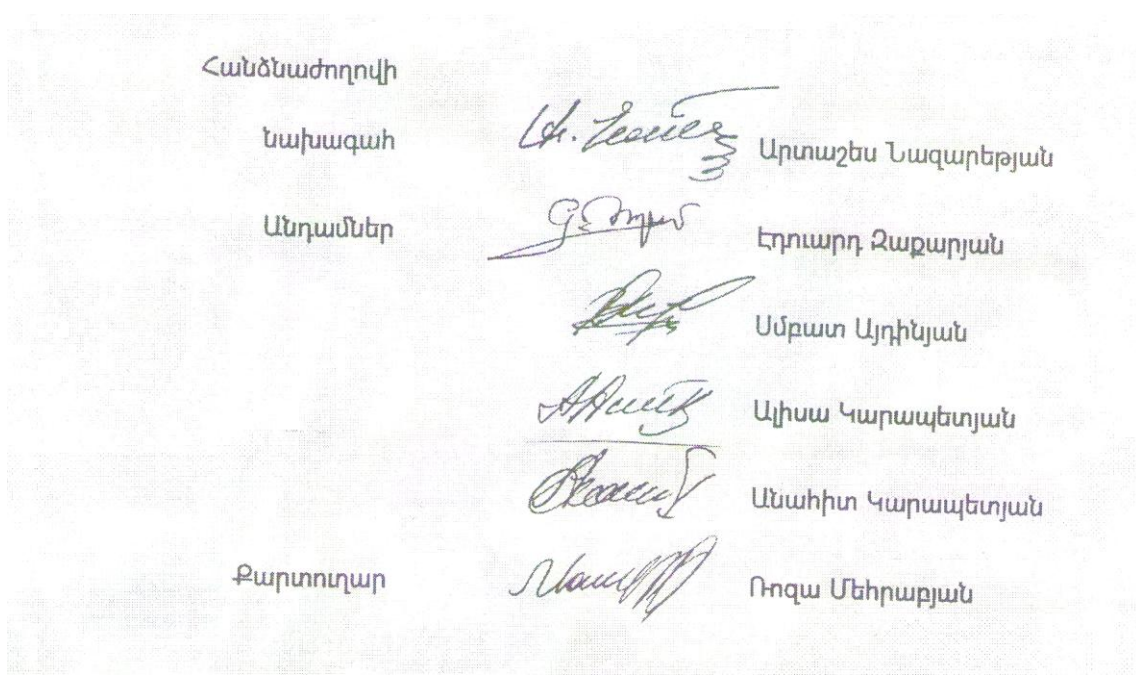 Հանձնաժողովի
նախագահ Արտաշես Նազարեթյան
Անդամներ Էդուարդ Զաքարյան
Սմբատ Այդինյան
Ալիսա Կարապետյան
Անահիտ Կարապետյան
Քարտուղար Ռոզա Մեհրաբյան